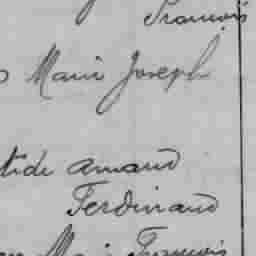 François
Marie Joseph
tide Amand
Ferdinand
Marie François